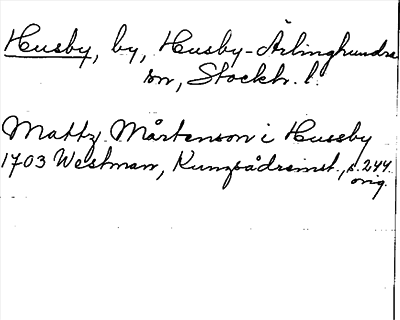 Husby, by, Husby-Ärlinghundra
sn, Stockh. l.
Mattz Mårtenson i Hussby
1703 Westman, Kunzbådzsmst., s. 244
orig.